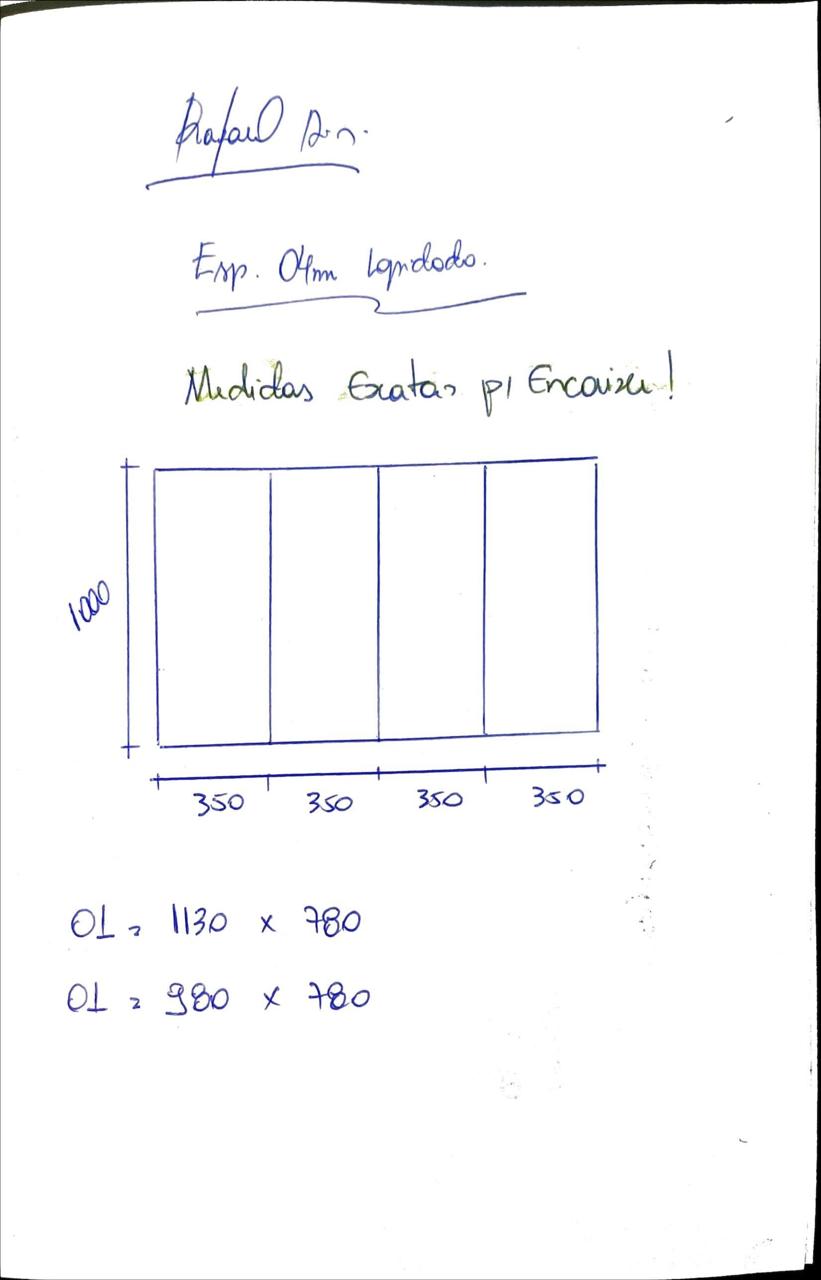 Rafael
Esp. 04mm lapidado.
Medidas Exatas p/ Encaixe!
1000
350 350 350 350
01 = 1130 x 780
01 = 980 x 780